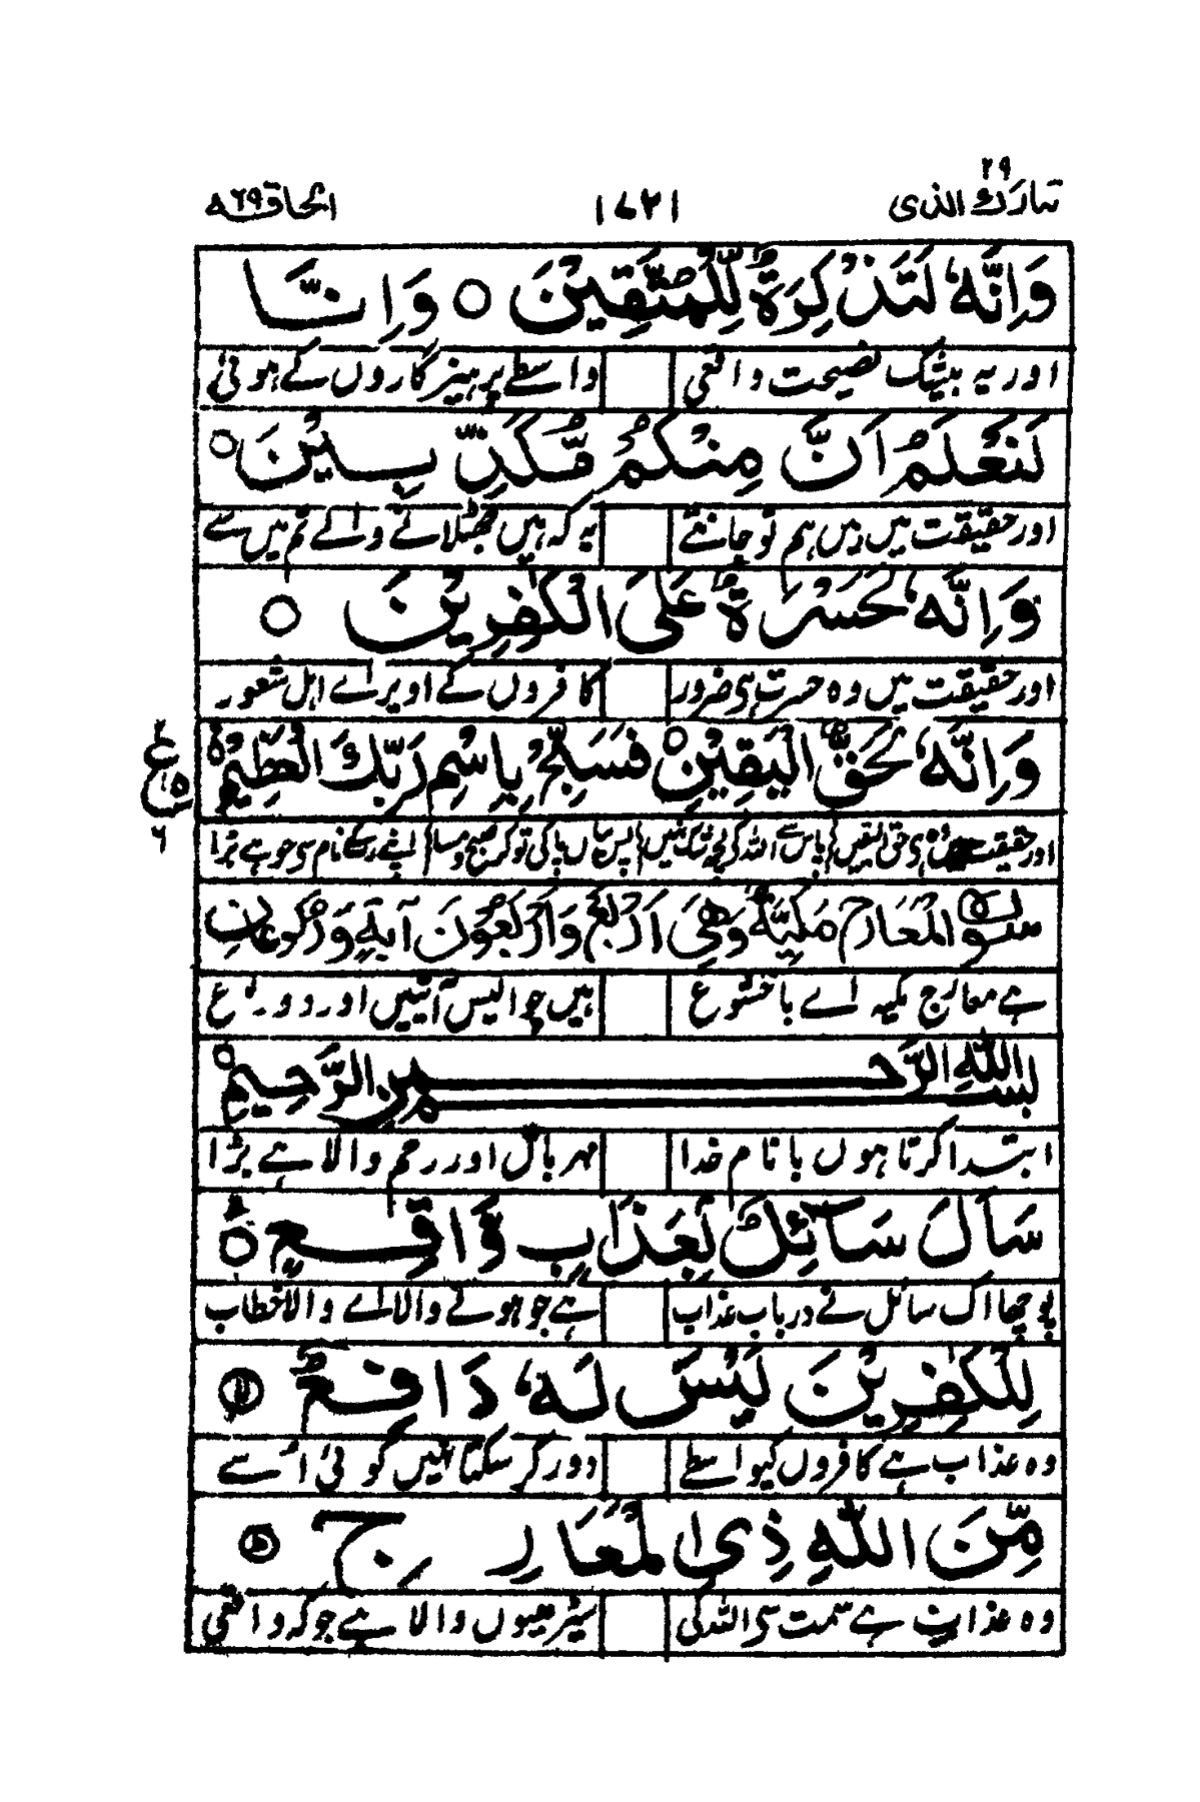 تبارک الذی ٢٩ ١٤٢١ الحاقه ٦٩
وَاِنَّهٗ لَتَذْكِرَةٌ لِّلْمُتَّقِيْنَ ○ وَاِنَّا
اور یہ بیشک نصیحت واقعی واسطے پرہیزگاروں کے ہوئی
لَنَعْلَمُ اَنَّ مِنْكُمْ مُّكَذِّبِيْنَ ○
اور حقیقت میں ہیں ہم تو جانتے یہ کہ ہیں جھٹلانے والے تم میں سے
وَاِنَّهٗ لَحَسْرَةٌ عَلَى الْكٰفِرِيْنَ ○
اور حقیقت میں وہ حسرت ہی ضرور کافروں کے اوپر اے اہل شعور
وَاِنَّهٗ لَحَقُّ الْيَقِيْنِ ○ فَسَبِّحْ بِاسْمِ رَبِّكَ الْعَظِيْمِ ○
ع ٥ ٦
اور حقیقت حق الیقیں پاس سے اللہ کے کچھ شک نہیں پس بیاں پاکی تو کر صبح و مسا اپنے رب کے نام سی جو ہے بڑا
سورة الْمَعَارِجِ مَكِّيَّةٌ وَهِيَ اَرْبَعٌ وَاَرْبَعُوْنَ آيَةً وَرُكُوْعَانِ
ہے معارج مکیہ اے باخشوع ہیں چوالیس آئتیں اور دو رکوع
بِسْمِ اللّٰهِ الرَّحْمٰنِ الرَّحِيْمِ ○
ابتدا کرتا ہوں با نام خدا مہرباں اور رحم والا ہے بڑا
سَاَلَ سَآئِلٌ بِعَذَابٍ وَّاقِعٍ ○
پوچھا اک سائل نے در باب عذاب ہے جو ہونے والا اے والا خطاب
لِلْكٰفِرِيْنَ لَيْسَ لَهٗ دَافِعٌ
وہ عذاب ہے کافروں کیواسطے دور کر سکتا نہیں کوئی اُسے
مِّنَ اللّٰهِ ذِى الْمَعَارِجِ
وہ عذاب ہے سمت سی اللہ کی سیڑھیوں والا ہے جو کہ واقعی